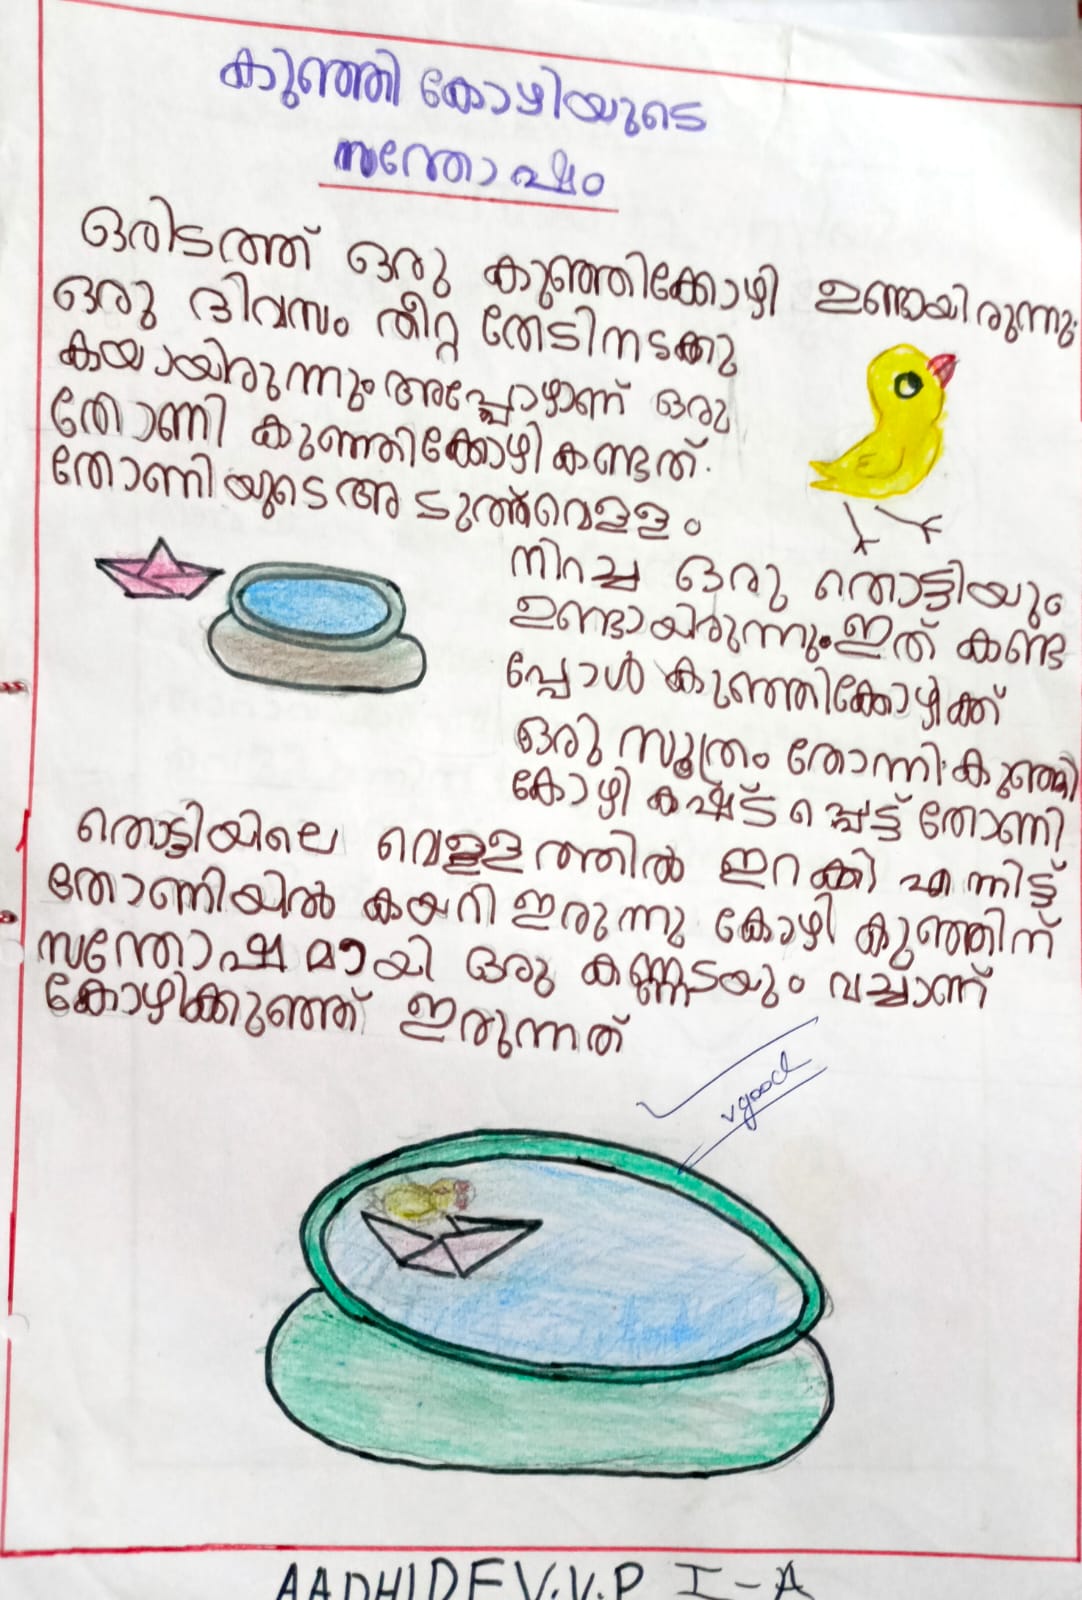 കുഞ്ഞി കോഴിയുടെ
സന്തോഷം
ഒരിടത്ത് ഒരു കുഞ്ഞിക്കോഴി ഉണ്ടായിരുന്നു.
ഒരു ദിവസം തീറ്റ തേടിനടക്കു
കയായിരുന്നും അപ്പോഴാണ് ഒരു
തോണി കുഞ്ഞിക്കോഴി കണ്ടത്.
തോണിയുടെ അടുത്ത് വെള്ളം
നിറച്ച ഒരു തൊട്ടിയും
ഉണ്ടായിരുന്നു. ഇത് കണ്ട
പ്പോൾ കുഞ്ഞിക്കോഴിക്ക്
ഒരു സൂത്രം തോന്നി. കുഞ്ഞി
കോഴി കഷ്ട്ടപ്പെട്ട് തോണി
തൊട്ടിയിലെ വെള്ളത്തിൽ ഇറക്കി എന്നിട്ട്
തോണിയിൽ കയറി ഇരുന്നു കോഴി കുഞ്ഞിന്
സന്തോഷമായി ഒരു കണ്ണടയും വച്ചാണ്
കോഴിക്കുഞ്ഞ് ഇരുന്നത്
v good
AADHIDEV.V.P I-A